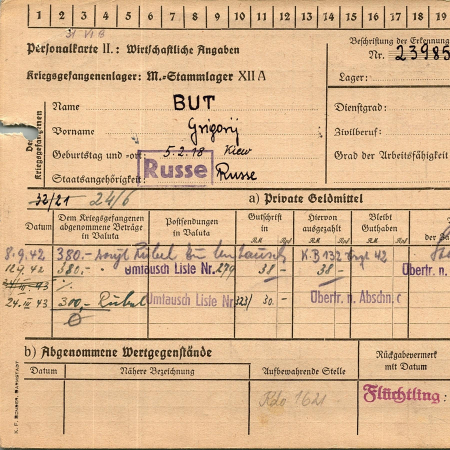 1 2 3 4 5 6 7 8 9 10 11 12 13 14 15 16 17 18 19
31 VI B
Personalkarte II.: Wirtschaftliche Angaben
Beschriftung der Erkennung
Nr. 23985
Kriegsgefangenenlager: M.-Stammlager XII A
Lager:
Des Kriegsgefangenen
Name BUT
Vorname Grigorij
Geburtstag und -ort: 5.2.18 Kiew
Staatsangehörigkeit: Russe Russe
Dienstgrad:
Zivilberuf:
Grad der Arbeitsfähigkeit
32/21 24/6
a) Private Geldmittel
Datum
Dem Kriegsgefangenen abgenommene Beträge in Valuta
Postsendungen in Valuta
Gutschrift in
RM Rpf
Hiervon ausgezahlt
RM Rpf
Bleibt Guthaben
RM Rpf
8.9.42 380.- Rubel
K.B 132 42
12.9.42 380.- Umtausch Liste Nr. 279 38 - 38 - Übertr. n.
24. III. 43
24. III 43 300,- Rubel Umtausch Liste Nr. 323/ 30.- Übertr. n. Abschn. c
b) Abgenommene Wertgegenstände
Rückgabevermerk mit Datum
Datum Nähere Bezeichnung Aufbewahrende Stelle
Kdo 1621
Flüchtling: